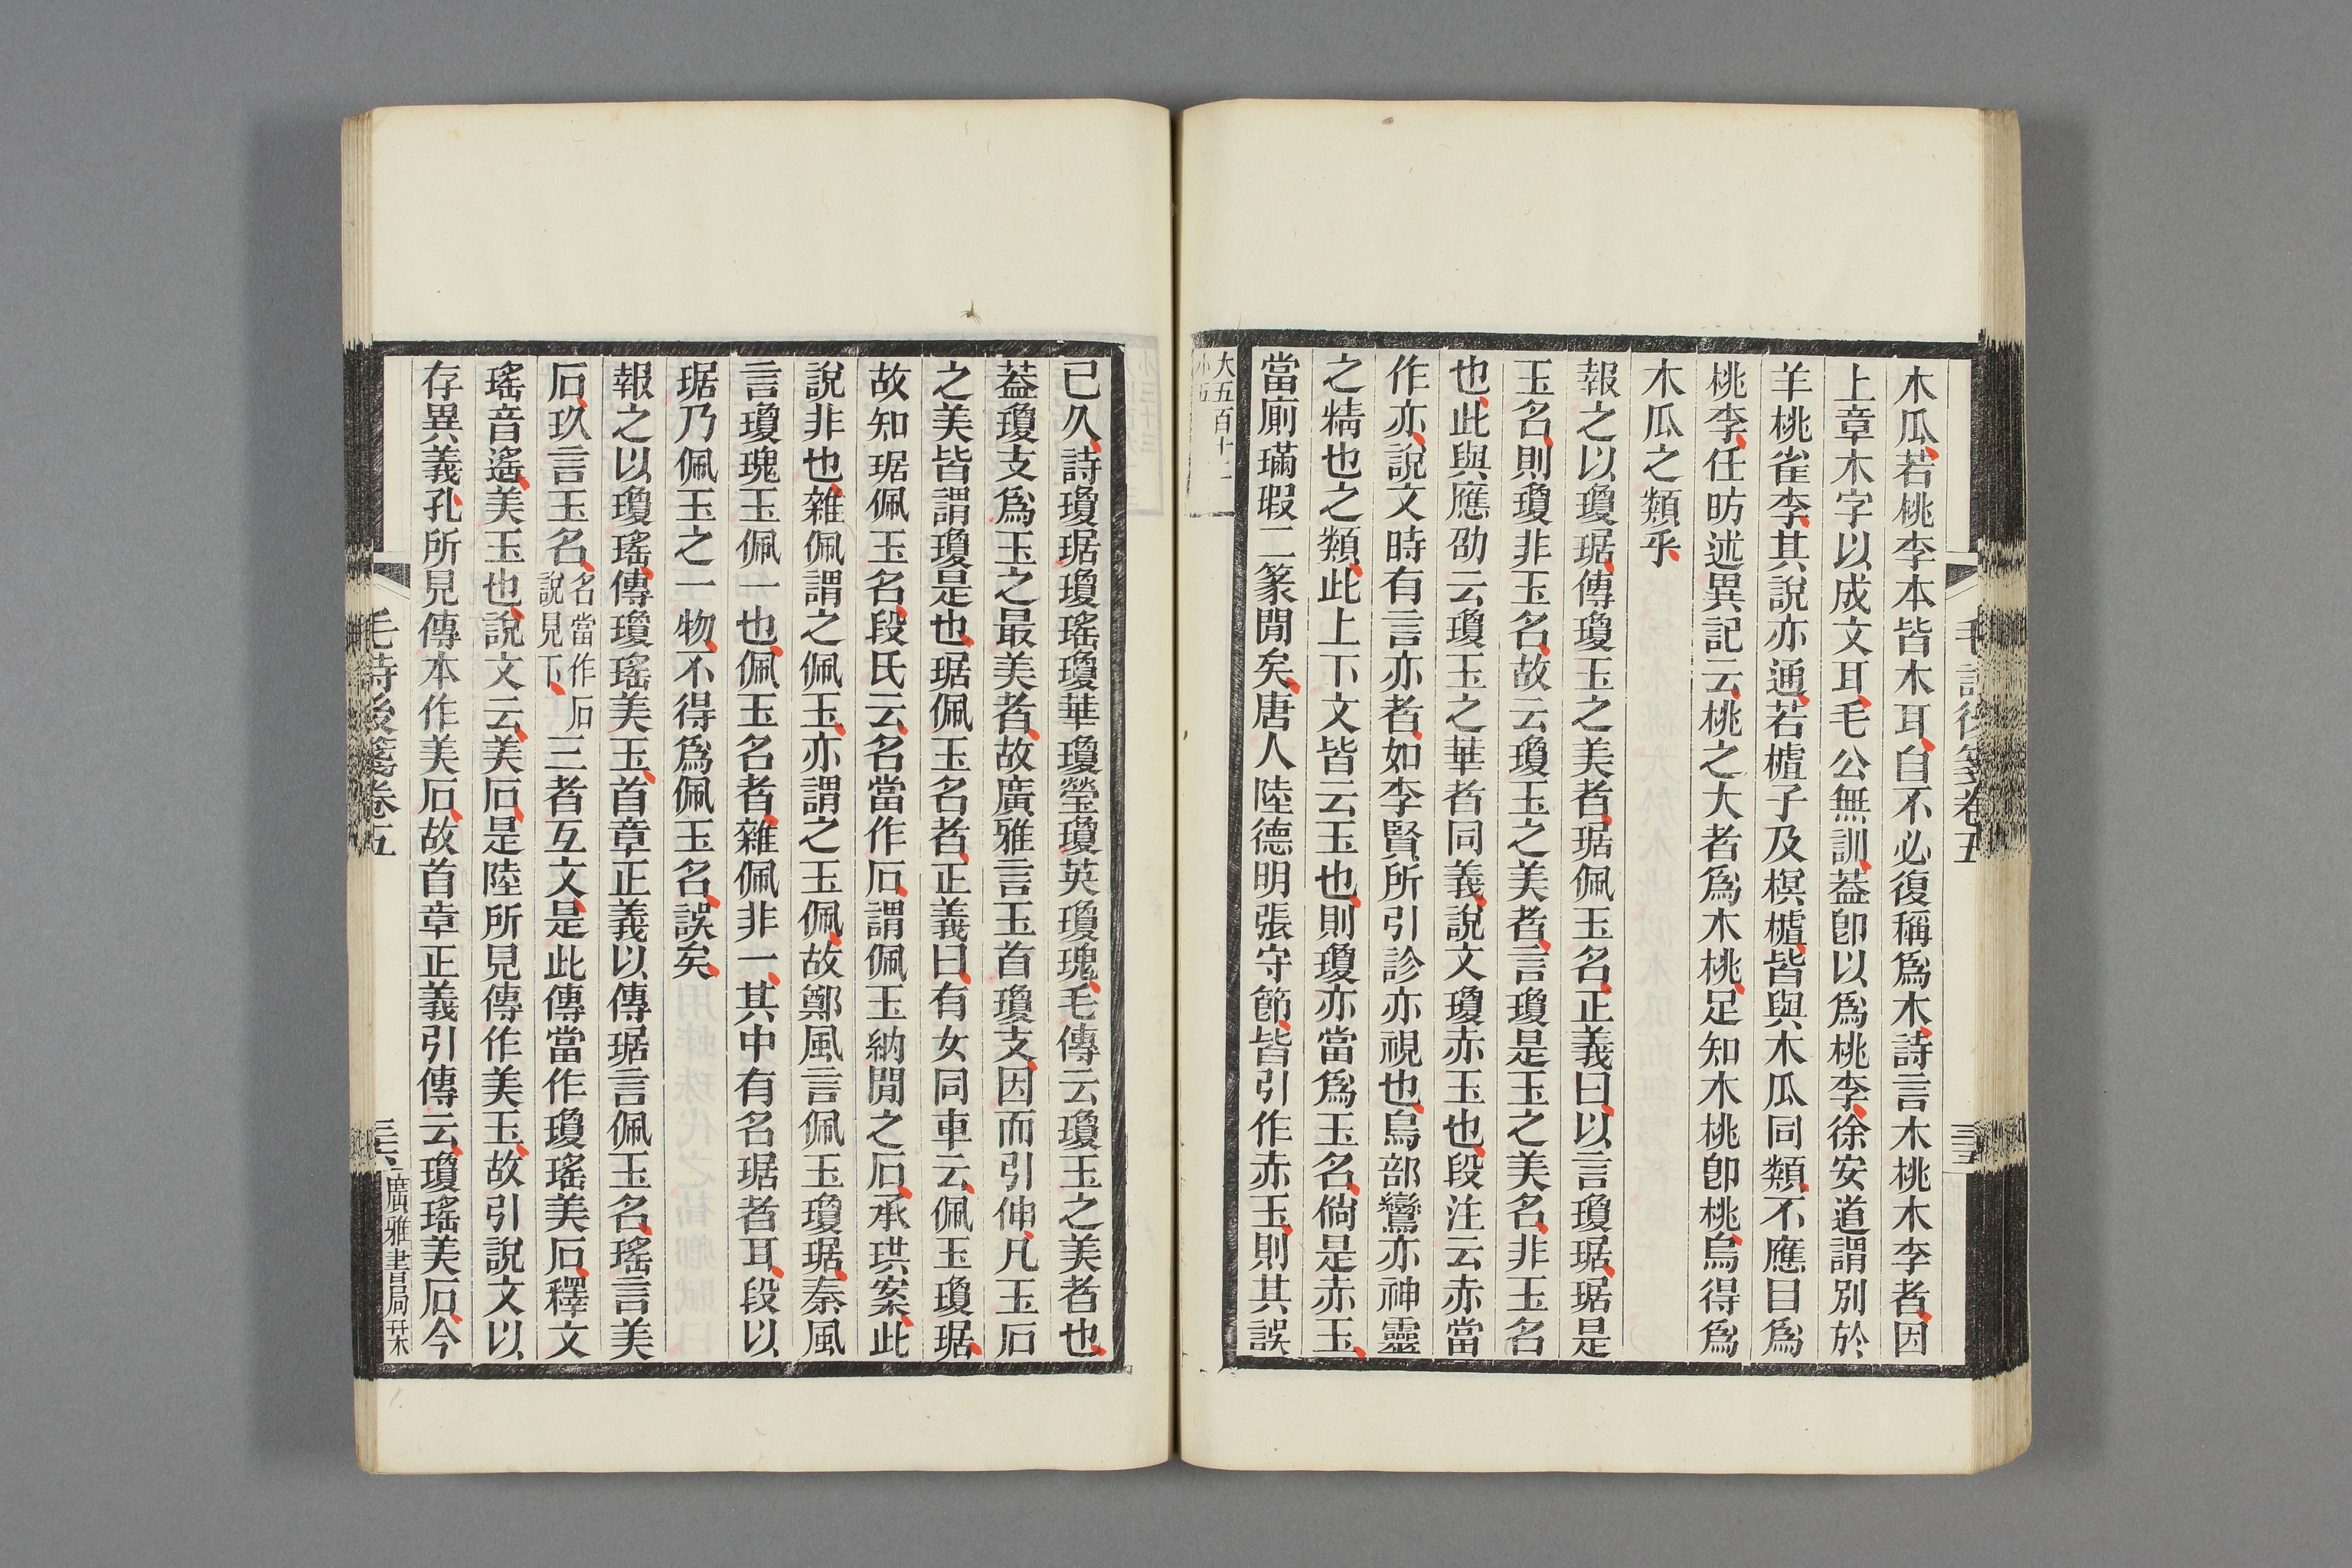 木瓜若桃李本皆木耳自不必復稱爲木詩言木桃木李者因
上章木字以成文耳毛公無訓葢卽以爲桃李徐安道謂別於
羊桃雀李其說亦通若樝子及榠樝皆與木瓜同類不應目爲
桃李任昉述異記云桃之大者爲木桃足知木桃卽桃烏得爲
木瓜之類乎
報之以瓊琚傳瓊玉之美者琚佩玉名正義曰以言瓊琚琚是
玉名則瓊非玉名故云瓊玉之美者言瓊是玉之美名非玉名
也此與應劭云瓊玉之華者同義說文瓊赤玉也段注云赤當
作亦說文時有言亦者如李賢所引診亦視也鳥部鸞亦神靈
之精也之類此上下文皆云玉也則瓊亦當爲玉名倘是赤玉
當廁璊瑕二篆閒矣唐人陸德明張守節皆引作赤玉則其誤
大五百十二
小五
毛詩後箋卷五
三五
已久詩瓊琚瓊瑤瓊華瓊瑩瓊英瓊瑰毛傳云瓊玉之美者也
葢瓊支爲玉之最美者故廣雅言玉首瓊支因而引伸凡玉石
之美皆謂瓊是也琚佩玉名者正義曰有女同車云佩玉瓊琚
故知琚佩玉名段氏云名當作石謂佩玉納閒之石承珙案此
說非也雜佩謂之佩玉亦謂之玉佩故鄭風言佩玉瓊琚秦風
言瓊瑰玉佩一也佩玉名者雜佩非一其中有名琚者耳段以
琚乃佩玉之一物不得爲佩玉名誤矣
報之以瓊瑤傳瓊瑤美玉首章正義以傳琚言佩玉名瑤言美
石玖言玉名名當作石說見下三者互文是此傳當作瓊瑤美石釋文
瑤音遙美玉也說文云美石是陸所見傳作美玉故引說文以
存異義孔所見傳本作美石故首章正義引傳云瓊瑤美石今
毛詩後箋卷五
三六
廣雅書局栞